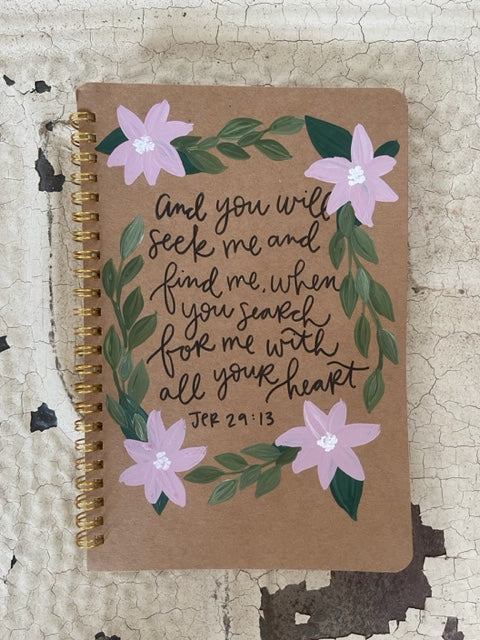 And you will
seek me and
find me, when
you search
for me with
all your heart
Jer 29:13